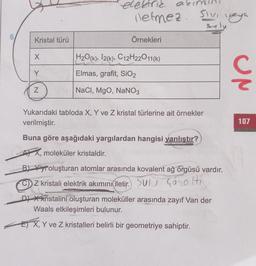 elektrik akımını
iletmez. Sıvı veya
Kristal türü Örnekleri
X H₂O(k), I₂(k), C₁₂H₂₂O₁₁(k)
Y Elmas, grafit, SiO₂
Z NaCl, MgO, NaNO₃
Yukarıdaki tabloda X, Y ve Z kristal türlerine ait örnekler
verilmiştir.
Buna göre aşağıdaki yargılardan hangisi yanlıştır?
A) X, moleküler kristaldir.
B) Y'yi oluşturan atomlar arasında kovalent ağ örgüsü vardır.
C) Z kristali elektrik akımını iletir.
D) X kristalini oluşturan moleküller arasında zayıf Van der
Waals etkileşimleri bulunur.
E) X, Y ve Z kristalleri belirli bir geometriye sahiptir.
107